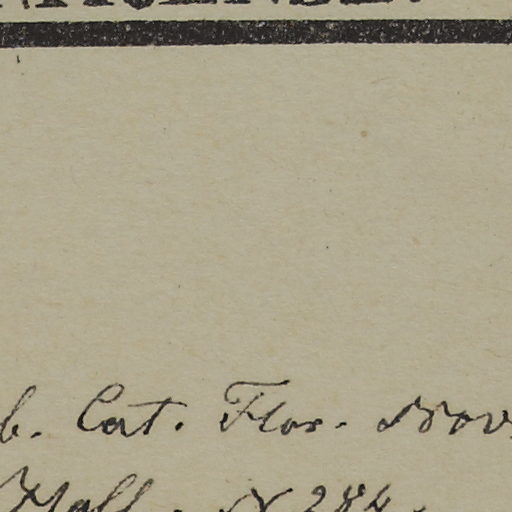 b. Cat. Flor. Nov.
Hall. N 284.